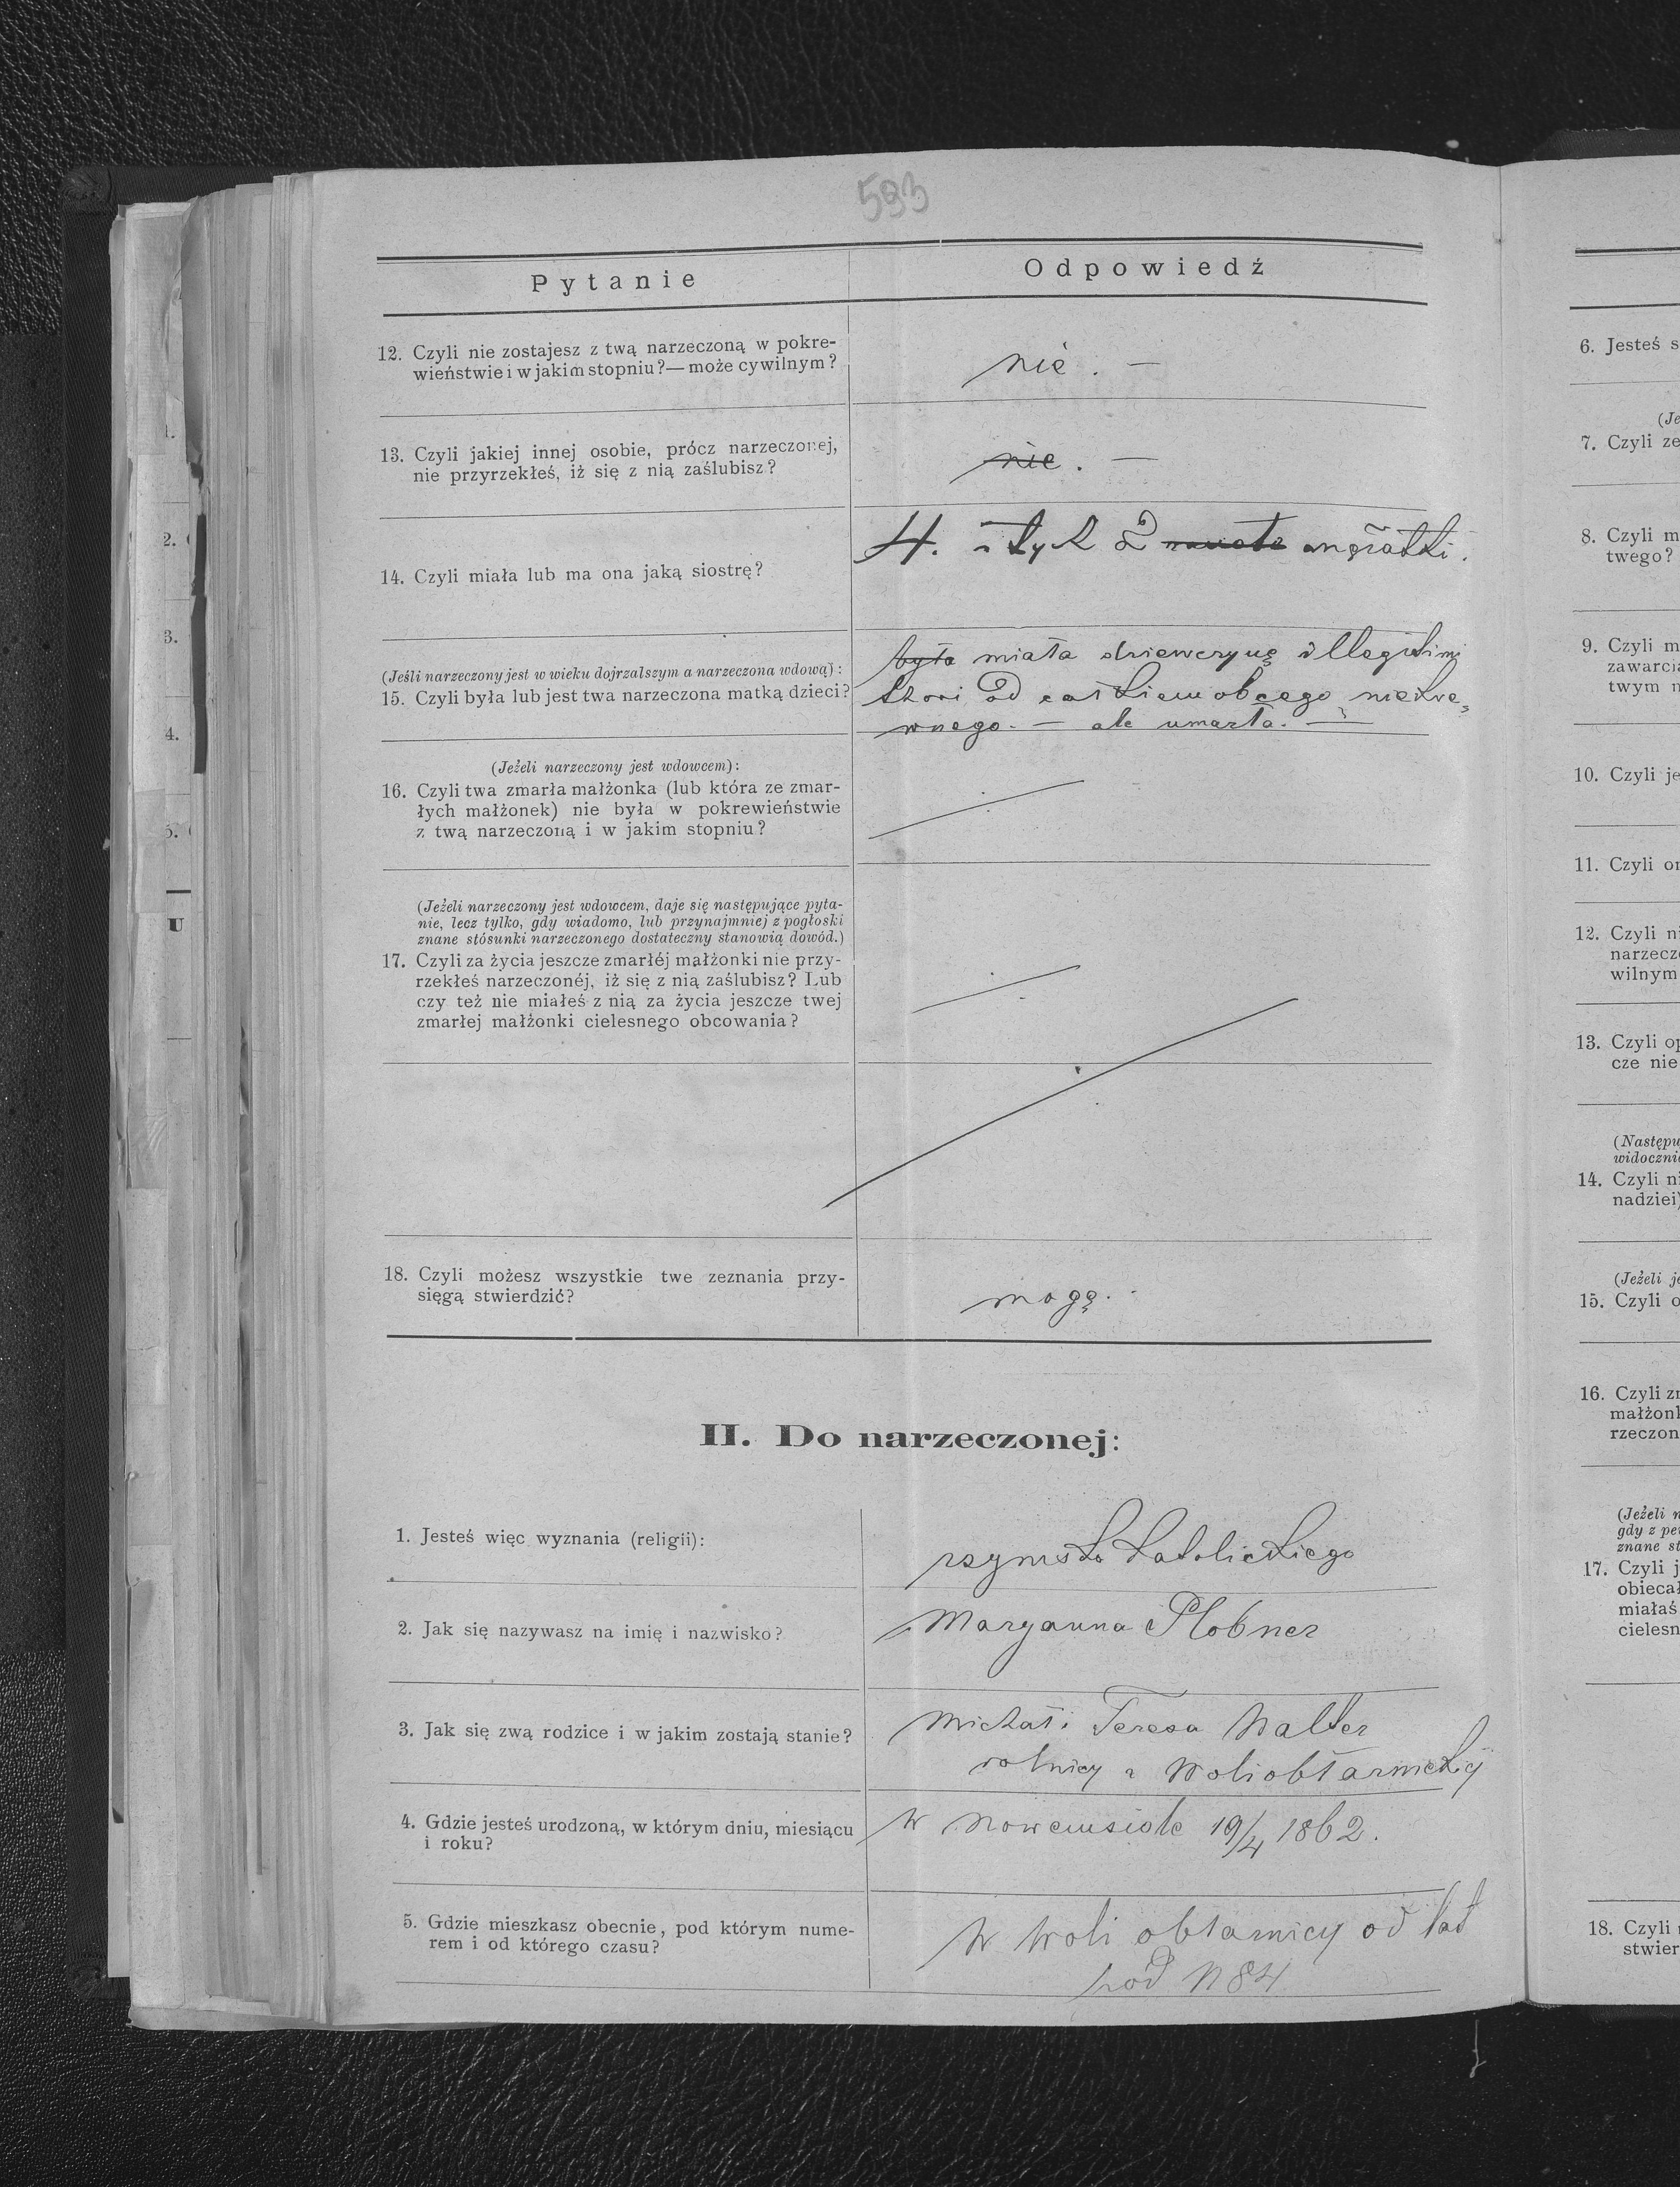 593
Pytanie
Odpowiedź
12. Czyli nie zostajesz z twą narzeczoną w pokre-
wieństwie i w jakim stopniu?— może cywilnym?
nie. —
13. Czyli jakiej innej osobie, prócz narzeczonej,
nie przyrzekłeś, iż się z nią zaślubisz?
nie. —
14. Czyli miała lub ma ona jaką siostrę?
4. z tych 2
(Jeśli narzeczony jest w wieku dojrzalszym a narzeczona wdową):
15. Czyli była lub jest twa narzeczona matką dzieci?
była miała dziewczynę illegitimi
thori od całkiem obcego niekre-
wnego. — ale umarła. —
(Jeżeli narzeczony jest wdowcem):
16. Czyli twa zmarła małżonka (lub która ze zmar-
łych małżonek) nie była w pokrewieństwie
z twą narzeczoną i w jakim stopniu?
(Jeżeli narzeczony jest wdowcem, daje się następujące pyta-
nie, lecz tylko, gdy wiadomo, lub przynajmniej z pogłoski
znane stósunki narzeczonego dostateczny stanowią dowód.)
17. Czyli za życia jeszcze zmarłéj małżonki nie przy-
rzekłeś narzeczonéj, iż się z nią zaślubisz? Lub
czy też nie miałeś z nią za życia jeszcze twej
zmarłej małżonki cielesnego obcowania?
18. Czyli możesz wszystkie twe zeznania przy-
sięgą stwierdzić?
mogę.
II. Do narzeczonej:
1. Jesteś więc wyznania (religii):
rzymsko katolickiego
2. Jak się nazywasz na imię i nazwisko?
Maryanna Plobner
3. Jak się zwą rodzice i w jakim zostają stanie?
Michał i Teresa Walter
rolnicy z Woli obłarnickij
4. Gdzie jesteś urodzoną, w którym dniu, miesiącu
i roku?
w Nowemsiole 19/4 1862.
5. Gdzie mieszkasz obecnie, pod którym nume-
rem i od którego czasu?
w Woli obłarnicy od lat
pod N 84
6. Jesteś s
(Je
7. Czyli ze
8. Czyli m
twego?
9. Czyli m
zawarci
twym n
10. Czyli je
11. Czyli on
12. Czyli ni
narzecz
wilnym
13. Czyli op
cze nie
(Następu
widoczni
14. Czyli ni
nadziei)
(Jeżeli je
15. Czyli o
16. Czyli zm
małżonk
rzeczon
(Jeżeli n
gdy z pe
znane st
17. Czyli j
obiecał
miałaś
cielesn
18. Czyli
stwier